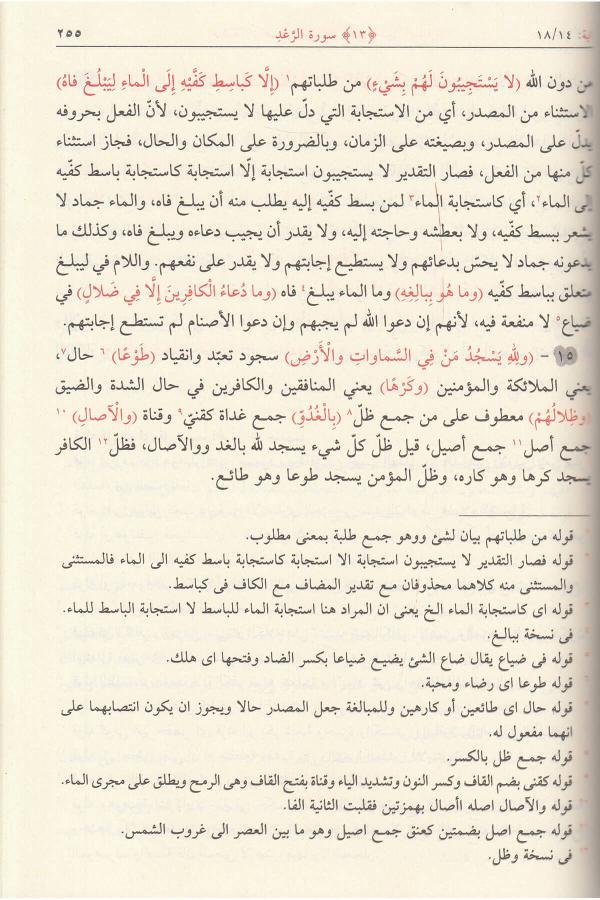 ية: ١٨/١٤ ﴿١٣﴾ سورة الرَّعْدِ ٢٥٥
من دون الله (لا يَسْتَجِيبُونَ لَهُمْ بِشَيْءٍ) من طلباتهم١ (إِلَّا كَبَاسِطِ كَفَّيْهِ إِلَى الْماءِ لِيَبْلُغَ فاهُ)
الاستثناء من المصدر، أي من الاستجابة التي دلّ عليها لا يستجيبون، لأنّ الفعل بحروفه
يدلّ على المصدر، وبصيغته على الزمان، وبالضرورة على المكان والحال، فجاز استثناء
كلّ منها من الفعل، فصار التقدير لا يستجيبون استجابة إلّا استجابة كاستجابة باسط كفّيه
إلى الماء٢، أي كاستجابة الماء٣ لمن بسط كفّيه إليه يطلب منه أن يبلغ فاه، والماء جماد لا
يشعر ببسط كفّيه، ولا بعطشه وحاجته إليه، ولا يقدر أن يجيب دعاءه ويبلغ فاه، وكذلك ما
يدعونه جماد لا يحسّ بدعائهم ولا يستطيع إجابتهم ولا يقدر على نفعهم. واللام في ليبلغ
متعلق بباسط كفّيه (وما هُو بِبالِغِهِ) وما الماء يبلغ٤ فاه (وما دُعاءُ الْكافِرِينَ إِلَّا فِي ضَلالٍ) في
ضياع٥ لا منفعة فيه، لأنهم إن دعوا الله لم يجبهم وإن دعوا الأصنام لم تستطع إجابتهم.
١٥ - (وللهِ يَسْجُدُ مَنْ فِي السَّماواتِ والْأَرْضِ) سجود تعبّد وانقياد (طَوْعًا) ٦ حال٧،
يعني الملائكة والمؤمنين (وكَرْهًا) يعني المنافقين والكافرين في حال الشدة والضيق
(وظِلالُهُمْ) معطوف على من جمع ظلّ٨ (بِالْغُدُوِّ) جمع غداة كقنيّ٩ وقناة (والْآصالِ) ١٠
جمع أصل١١ جمع أصيل، قيل ظلّ كلّ شيء يسجد لله بالغد ووالآصال، فظلّ١٢ الكافر
يسجد كرها وهو كاره، وظلّ المؤمن يسجد طوعا وهو طائع.
قوله من طلباتهم بيان لشئ ووهو جمع طلبة بمعنى مطلوب.
قوله فصار التقدير لا يستجيبون استجابة الا استجابة كاستجابة باسط كفيه الى الماء فالمستثنى
والمستثنى منه كلاهما محذوفان مع تقدير المضاف مع الكاف فى كباسط.
قوله اى كاستجابة الماء الخ يعنى ان المراد هنا استجابة الماء للباسط لا استجابة الباسط للماء.
فى نسخة ببالغ.
قوله فى ضياع يقال ضاع الشئ يضيع ضياعا بكسر الضاد وفتحها اى هلك.
قوله طوعا اى رضاء ومحبة.
قوله حال اى طائعين أو كارهين وللمبالغة جعل المصدر حالا ويجوز ان يكون انتصابهما على
انهما مفعول له.
قوله جمع ظل بالكسر.
قوله كقنى بضم القاف وكسر النون وتشديد الياء وقناة بفتح القاف وهى الرمح ويطلق على مجرى الماء.
قوله والآصال اصله اأصال بهمزتين فقلبت الثانية الفا.
قوله جمع اصل بضمتين كعنق جمع اصيل وهو ما بين العصر الى غروب الشمس.
فى نسخة وظل.